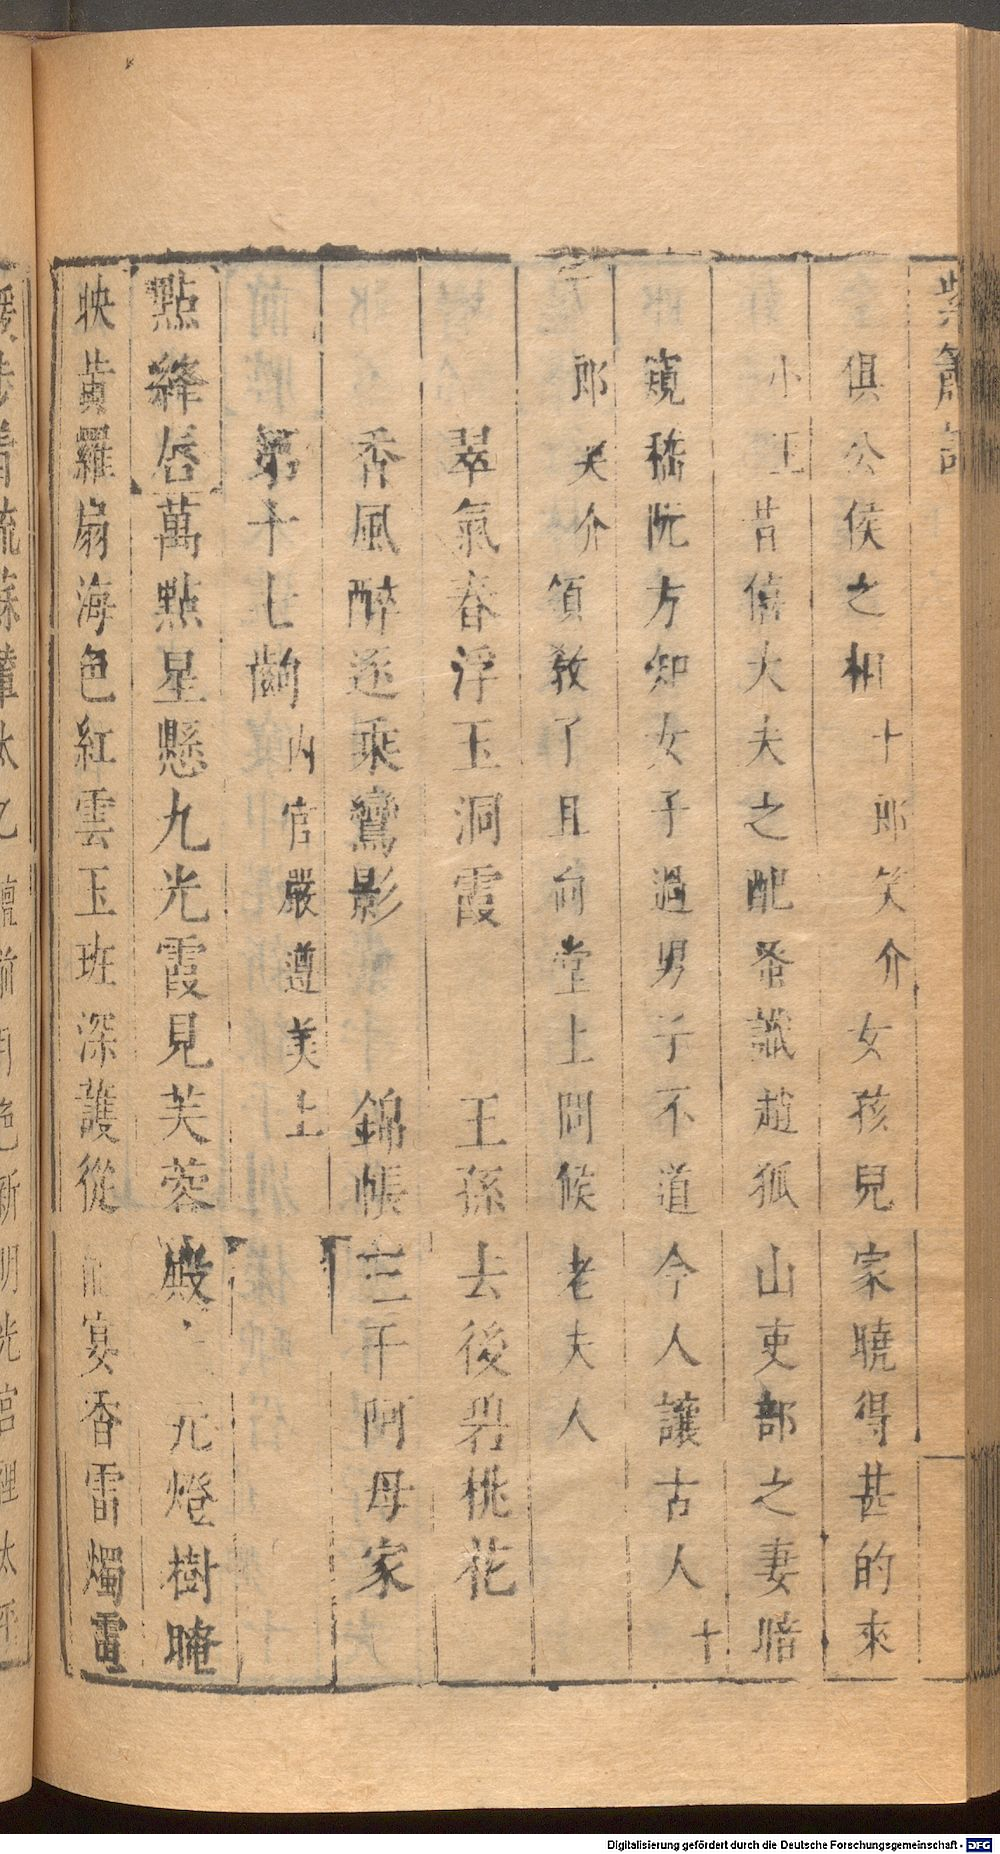 紫簫記
俱公侯之相十郎笑介女孩兒家曉得甚的來
小玉昔僖大夫之配卷識趙狐山吏部之妻暗
窺嵇阮方知女子過男子不道今人讓古人十
郎笑介領教了且向堂上問候老夫人
翠氣春浮玉洞霞　王孫去後碧桃花
香風醉逐乘鸞影　錦帳三千阿母家
第十七齣內官嚴遵美上
點絳唇萬點星懸九光霞見芙蓉殿元燈樹晻
映黃羅扇海色紅雲玉班深護從宴香雷燭電
Digitalisierung gefördert durch die Deutsche Forschungsgemeinschaft - DFG